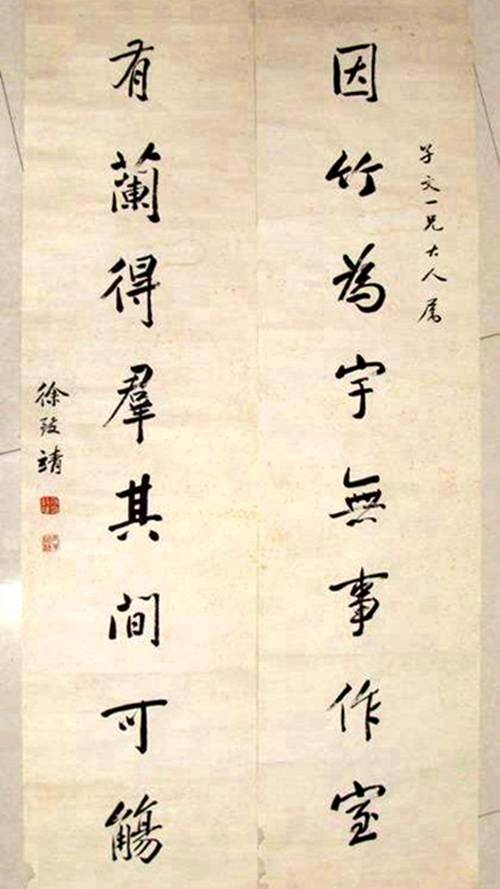 文一兄大人属
因竹為宇無事作室
有蘭得羣其間可觴
徐致靖